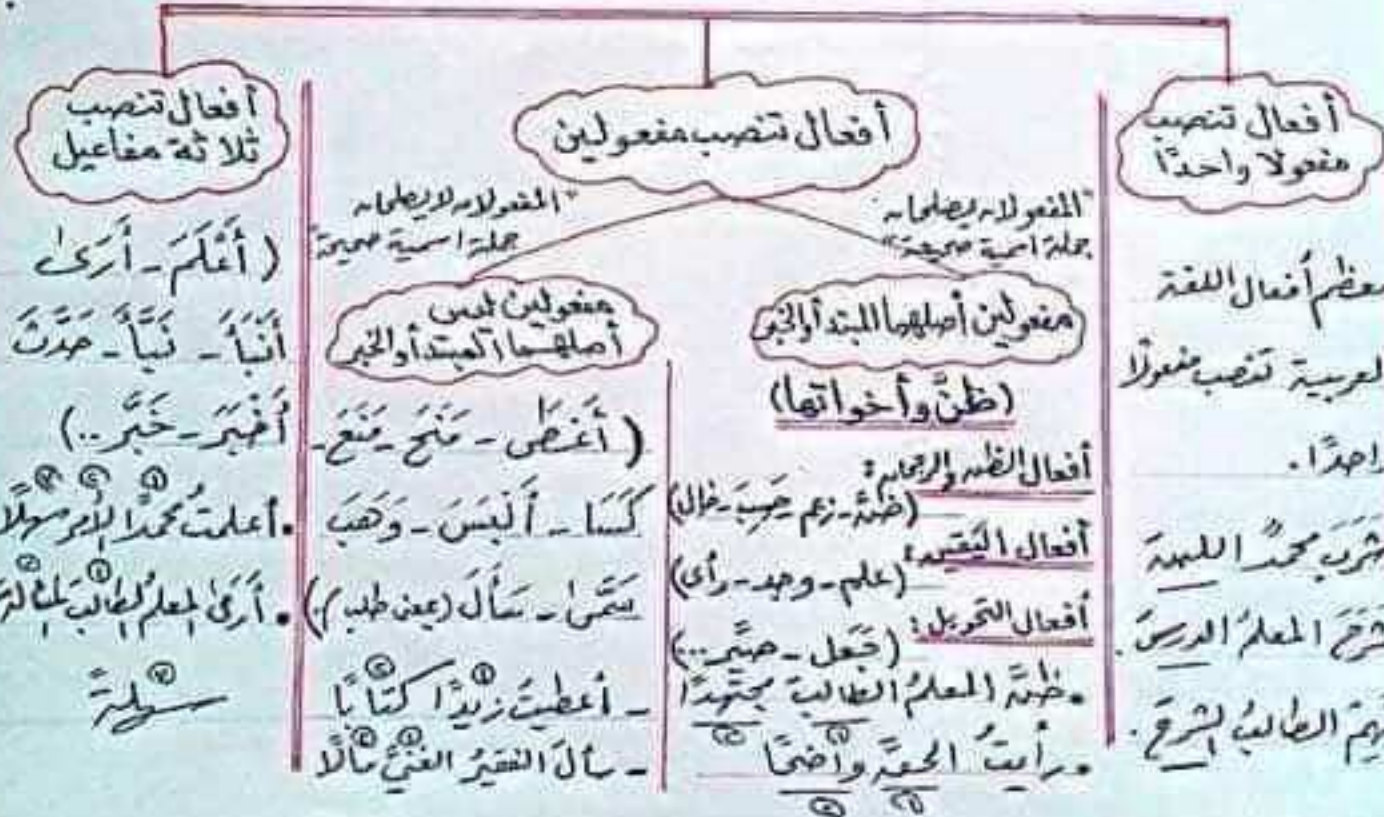 أفعال تنصب
مفعولًا واحدًا
معظم أفعال اللغة
العربية تنصب مفعولًا
واحدًا.
شرب محمدٌ اللبن
شرح المعلمُ الدرسَ.
فهم الطالبُ الشرحَ.
أفعال تنصب مفعولين
"المفعولان يصلحان
جملة اسمية صحيحة"
مفعولين أصلهما المبتدأ والخبر
(ظنَّ وأخواتها)
أفعال الظن والرجحان:
(ظنَّ - زعم - حسِبَ - خال)
أفعال اليقين:
(علم - وجد - رأى)
أفعال التحويل:
(جَعَل - صيَّر...)
• ظنَّ المعلمُ الطالبَ مجتهدًا
① ②
• رأيتُ الحقَّ واضحًا
① ②
"المفعولان لا يصلحان
جملة اسمية صحيحة"
مفعولين ليس
أصلهما المبتدأ والخبر
(أَعْطَى - مَنَحَ - مَنَعَ -
كَسَا - أَلْبَسَ - وَهَبَ
سَمَّى - سَأَلَ (بمعنى طلب)..)
① ②
- أعطيتُ زيدًا كتابًا
① ②
- سألَ الفقيرُ الغنيَّ مالًا
أفعال تنصب
ثلاثة مفاعيل
(أَعْلَمَ - أَرَى
أَنْبَأَ - نَبَّأَ - حَدَّثَ
أَخْبَرَ - خَبَّر..)
① ② ③
• أعلمتُ محمدًا الأمرَ سهلًا
① ②
• أرى المعلمُ الطالبَ المسألةَ
③
سهلةً